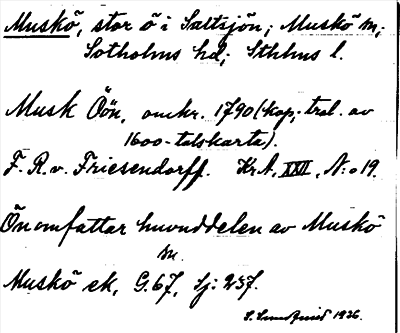 Muskö, stor ö i Saltsjön; Muskö sn;
Sotholms hd; Sthlms l.
Musk Öön, omkr. 1790 (kop; trol. av
1600-talskarta).
F. R. v. Friesendorff. Kr.A, XXII, N:o 19.
Ön omfattar huvuddelen av Muskö
sn.
Muskö ek, G. 67, Sj: 237.
1926.